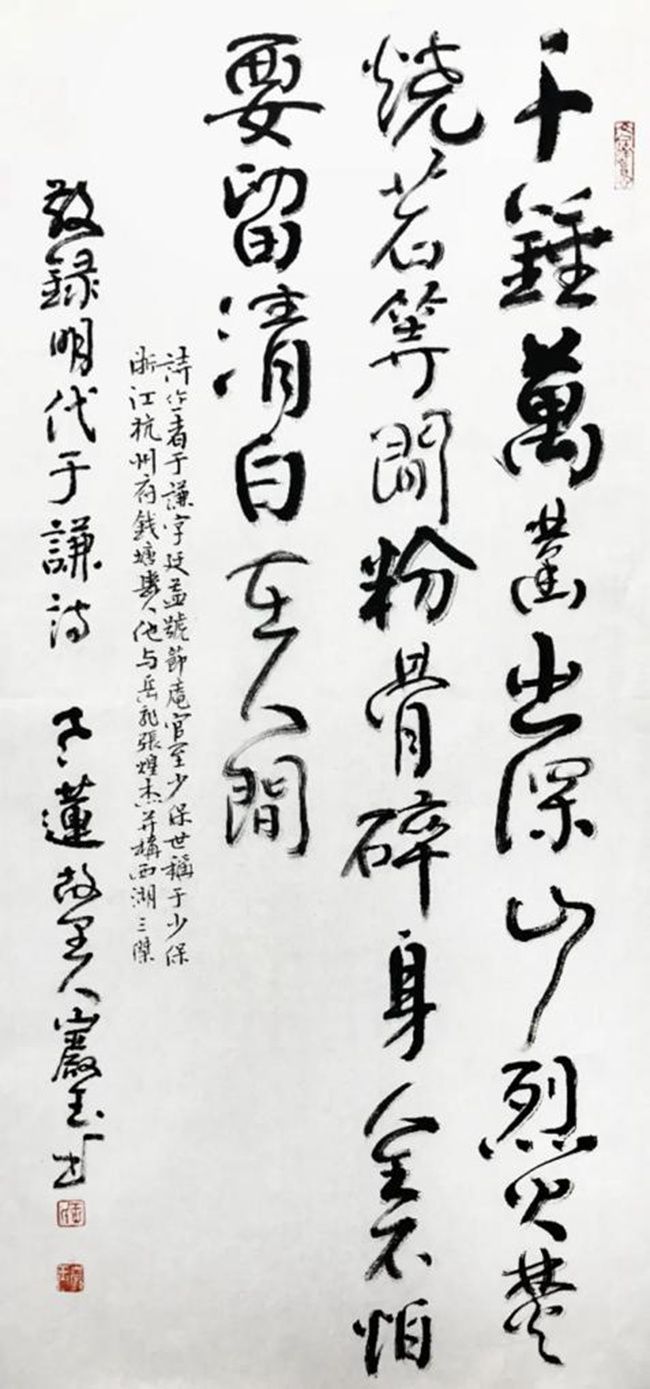 千錘萬凿出深山烈火焚
燒若等閒粉骨碎身全不怕
要留清白在人間
詩作者于謙字廷益號節庵官至少保世稱于少保
浙江杭州府錢塘縣人他与岳飛張煌杰并稱西湖三傑
敬録明代于謙詩 蓮故里人巖玉书